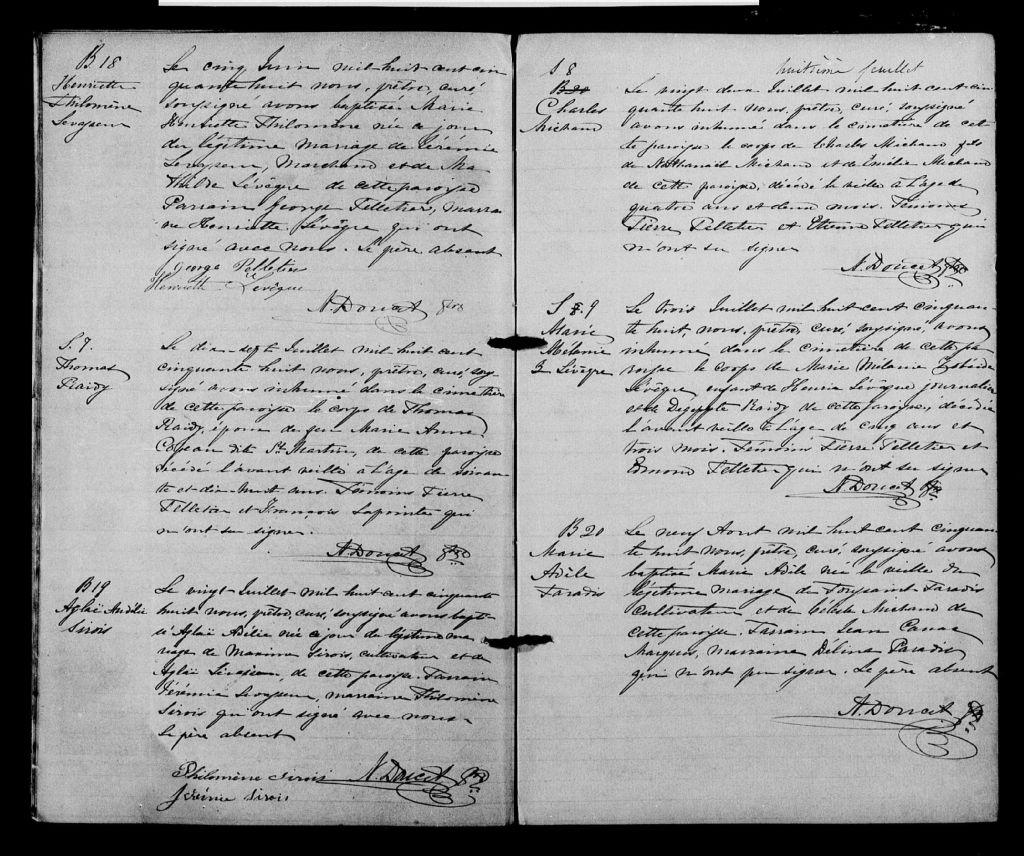 B 18
Henriette
Philomène
Levasseur
Le cinq Juin mil-huit-cent cin
quante huit nous, prêtre, curé
soussigné avons baptisé Marie
Henriette Philomène née ce jour
du légitime mariage de Jérémie
Levasseur, Marchand et de Ma
thilde Lévêque de cette paroisse
Parrain George Pelletier, marrai
ne Henriette Lévêque qui ont
signé avec nous. Le père absent
George Pelletier
Henriette Levêque
N. Doucet Ptre
S. 7.
Thomas
Raidy
Le dix-sept Juillet mil-huit cent
cinquante huit nous, prêtre, curé, sous
signé avons inhumé dans le cimetière
de cette paroisse le corps de Thomas
Raidy, époux de feu Marie Anne
dit St Martin, de cette paroisse
décédé l'avant veille à l'age de soixan
te et dix-huit ans. Témoins Pierre
Pelletier et François Lapointe qui
n'ont su signer.
N. Doucet Ptre
B 19
Aglaë Adélie
Sirois
Le vingt Juillet mil-huit cent cinquante
huit nous, prêtre, curé, soussigné avons bapti
sé Aglaë Adélie née ce jour du légitime ma
riage de Maxime Sirois, cultivateur et de
Aglaë, de cette paroisse. Parrain
Jérémie, marraine Philomène
Sirois qui ont signé avec nous.
Le père absent
Philomène Sirois
N. Doucet Ptre
Jérémie Sirois
huitième feuillet
S 8
B 20
Charles
Michaud
Le vingt deux Juillet mil huit cent cin
quante huit nous, prêtre, curé, soussigné
avons inhumé dans le cimetière de cet
te paroisse le corps de Charles Michaud fils
de Nathanaël Michaud et de Emélie Michaud
de cette paroisse, décédé la veille à l'age de
quatre ans et deux mois. Témoins
Pierre Pelletier et Etienne Pelletier qui
n'ont su signer
N. Doucet Ptre
S 9
Marie
Mélanie
Lévêque
Le trois Juillet mil huit cent cinquan
te huit, nous, prêtre, curé soussigné, avons
inhumé dans le cimetière de cette pa
roisse le corps de Marie Mélanie
Lévêque enfant de Lévêque journalier
et de Raidy de cette paroisse, décédée
l'avant veille à l'âge de cinq ans et
trois mois. Témoins Pierre Pelletier et
Edmond Pelletier qui n'ont su signer
N. Doucet Ptre
B 20
Marie
Adèle
Paradis
Le neuf Aout mil huit cent cinquan
te huit nous, prêtre, curé soussigné avons
baptisé Marie Adèle née la veille du
légitime mariage de Toussaint Paradis
cultivateur et de Michaud de
cette paroisse. Parrain Jean
Marquis, marraine Délina Paradis
qui n'ont pu signer. Le père absent
N. Doucet Ptre